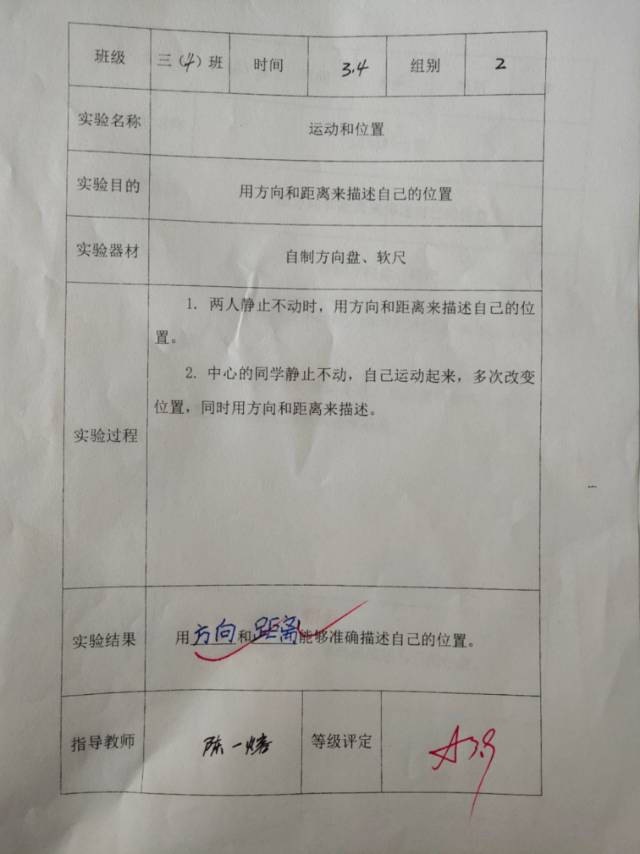 班级 三（4）班 时间 3.4 组别 2
实验名称 运动和位置
实验目的 用方向和距离来描述自己的位置
实验器材 自制方向盘、软尺
实验过程
1. 两人静止不动时，用方向和距离来描述自己的位
置。
2. 中心的同学静止不动，自己运动起来，多次改变
位置，同时用方向和距离来描述。
实验结果 用方向和距离能够准确描述自己的位置。
指导教师 陈一 等级评定